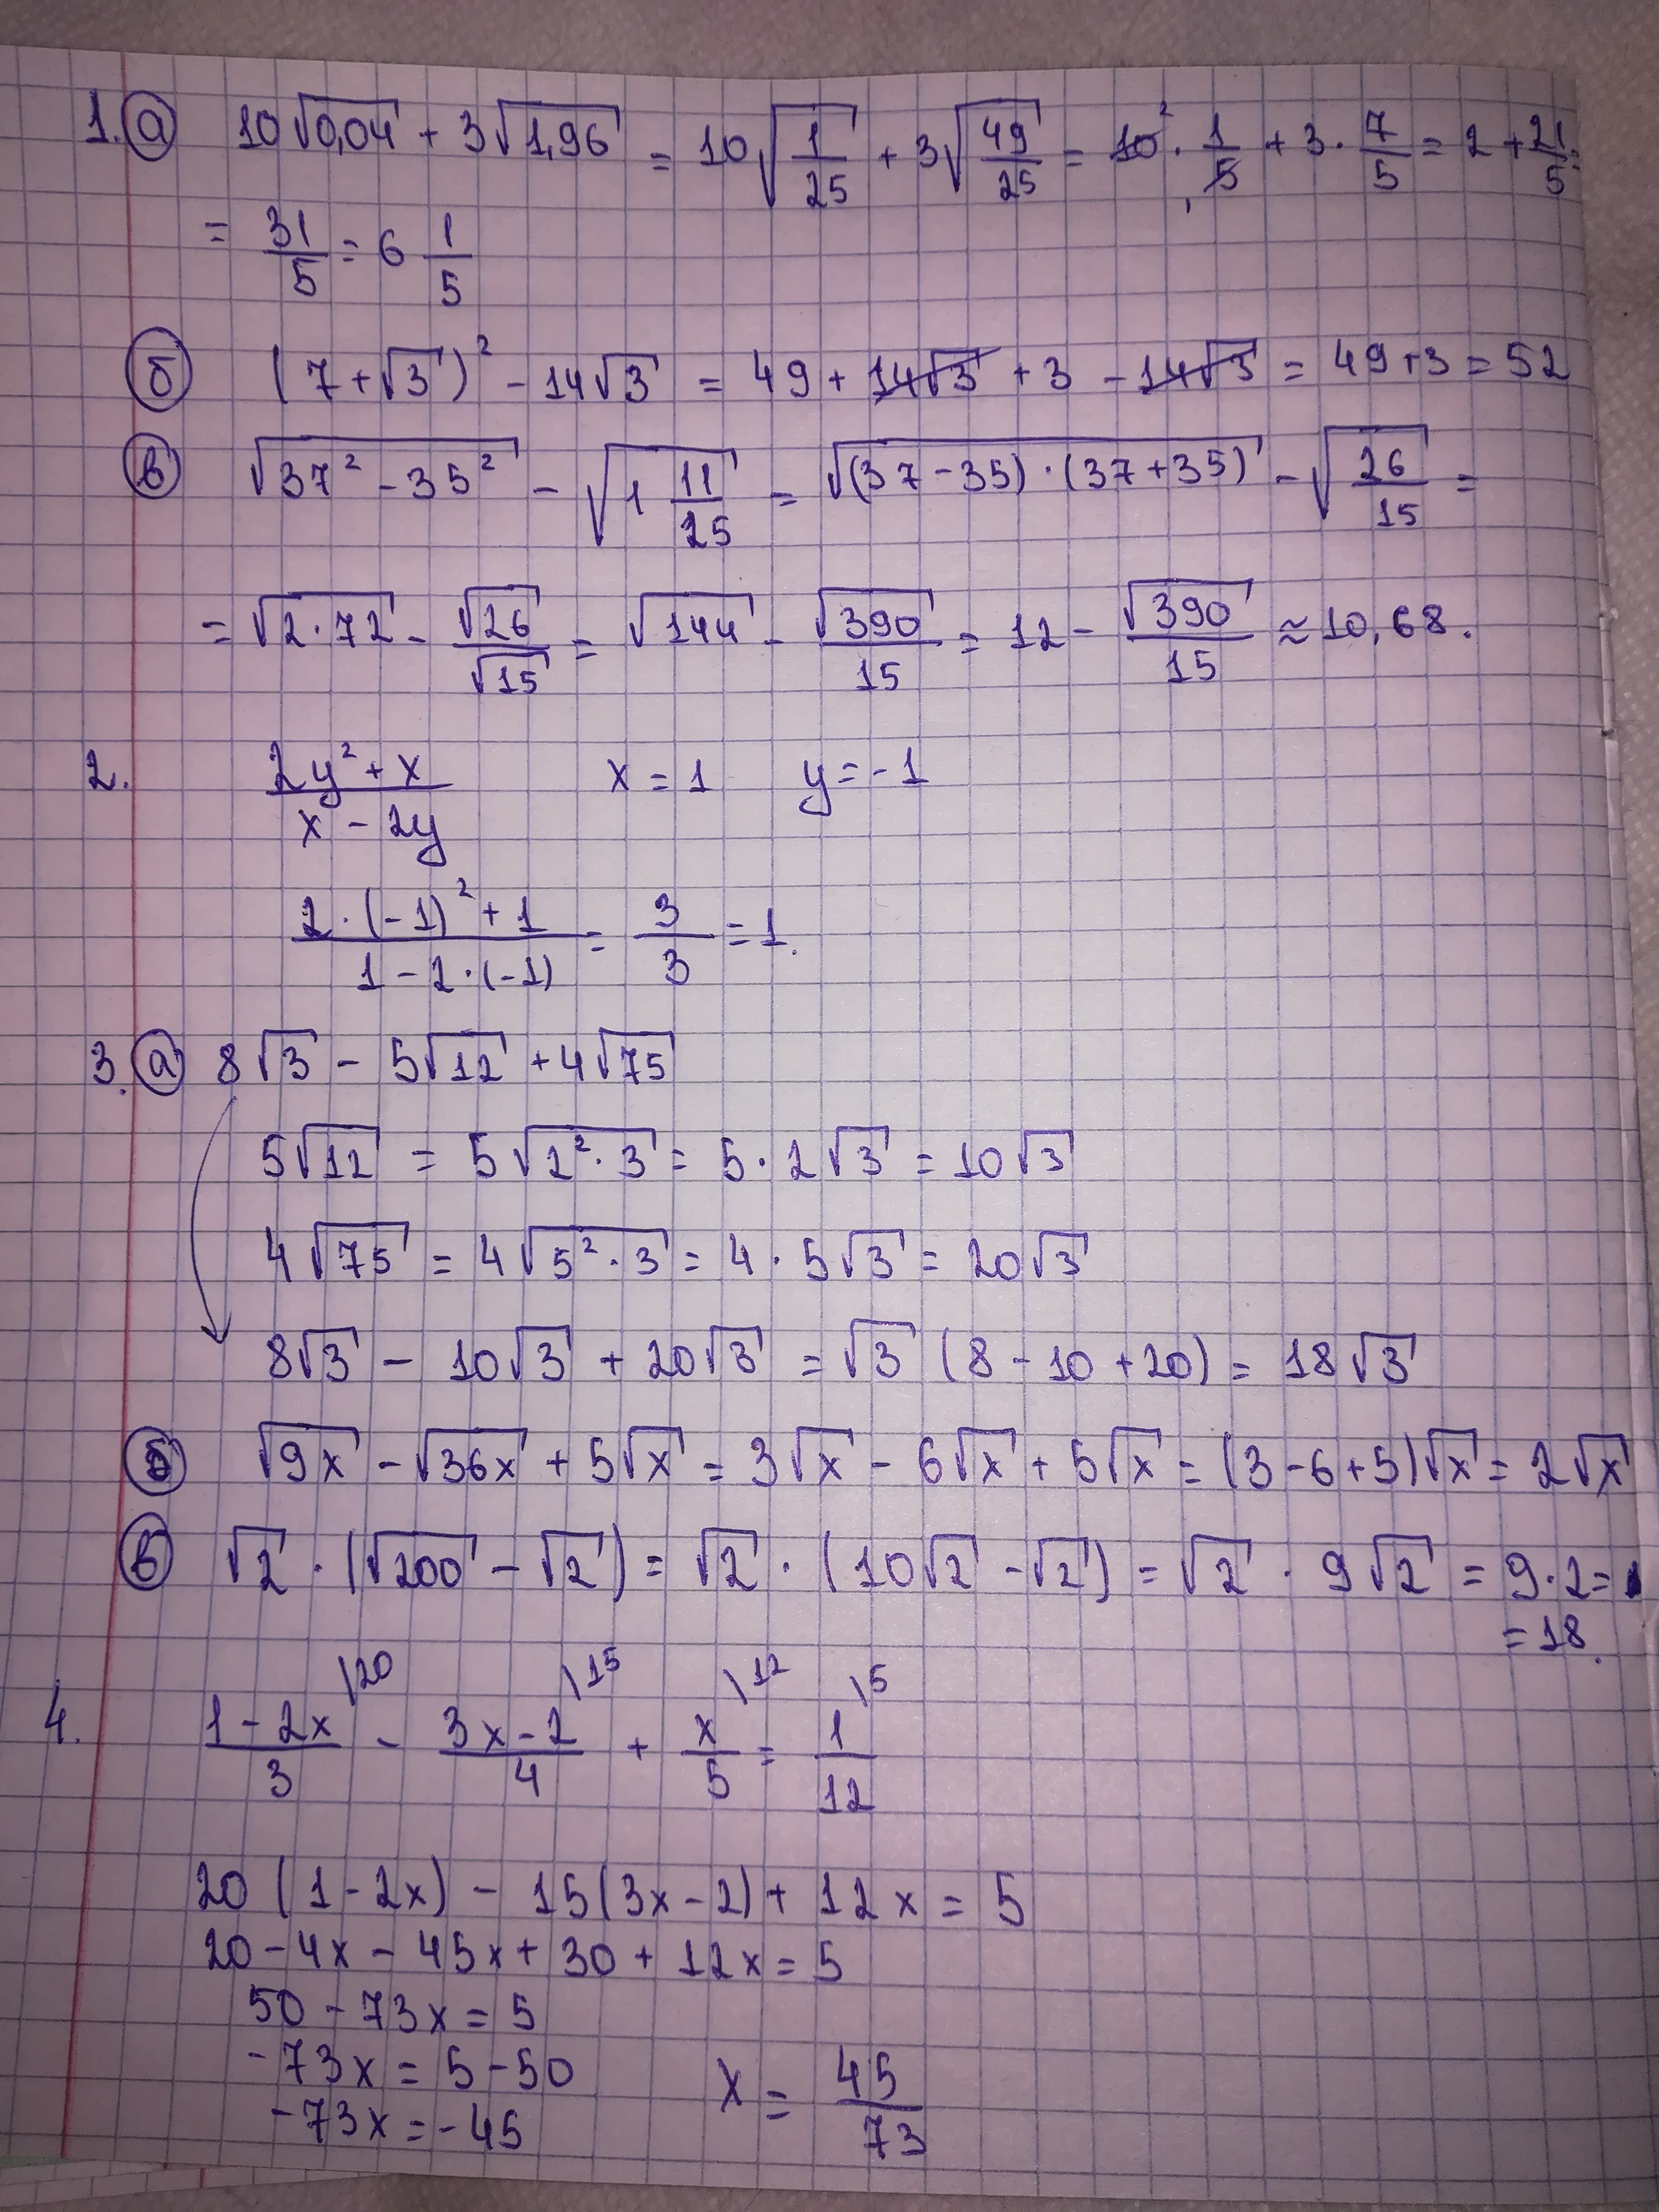 1. а) 10√0,04 + 3√1,96 = 10√(1/25) + 3√(49/25) = 10² · 1/5 + 3 · 7/5 = 2 + 21/5 =
= 31/5 = 6 1/5
б) (7 + √3)² - 14√3 = 49 + 14√3 + 3 - 14√3 = 49 + 3 = 52
в) √(37² - 35²) - √(1 11/25) = √((37 - 35) · (37 + 35)) - √(26/15) =
= √(2 · 72) - √26/√15 = √144 - √390/15 = 12 - √390/15 ≈ 10,68.
2. (2y² + x)/(x - 2y) x = 1 y = -1
(2 · (-1)² + 1)/(1 - 2 · (-1)) = 3/3 = 1.
3. а) 8√3 - 5√12 + 4√75
5√12 = 5√(2² · 3) = 5 · 2√3 = 10√3
4√75 = 4√(5² · 3) = 4 · 5√3 = 20√3
8√3 - 10√3 + 20√3 = √3 (8 - 10 + 20) = 18√3
б) √9x - √36x + 5√x = 3√x - 6√x + 5√x = (3 - 6 + 5)√x = 2√x
в) √2 · (√200 - √2) = √2 · (10√2 - √2) = √2 · 9√2 = 9 · 2 =
= 18.
4. (1 - 2x)/3 \20 - (3x - 2)/4 \15 + x/5 \12 = 1/12 \5
20 (1 - 2x) - 15(3x - 2) + 12x = 5
20 - 4x - 45x + 30 + 12x = 5
50 - 73x = 5
-73x = 5 - 50
-73x = -45 x = 45/73